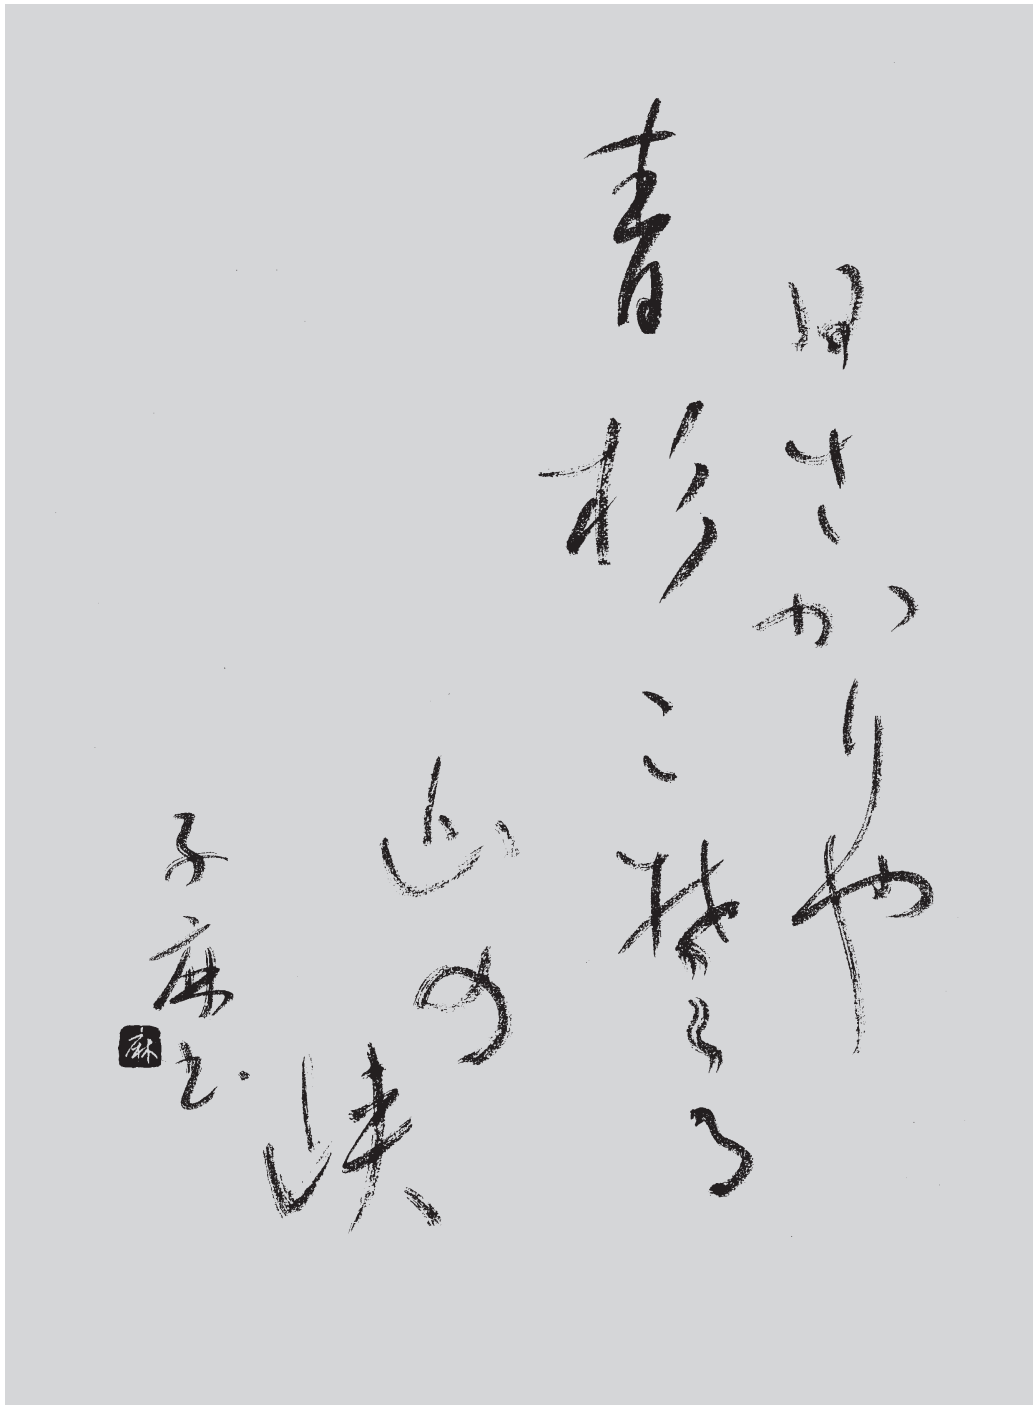 日さかりや
青杉こ楚る
山の峡
子麻书
麻